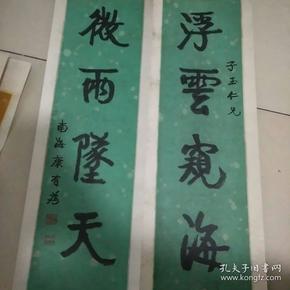 浮雲窺海
子玉仁兄
微雨墜天
南海康有為
孔夫子旧书网